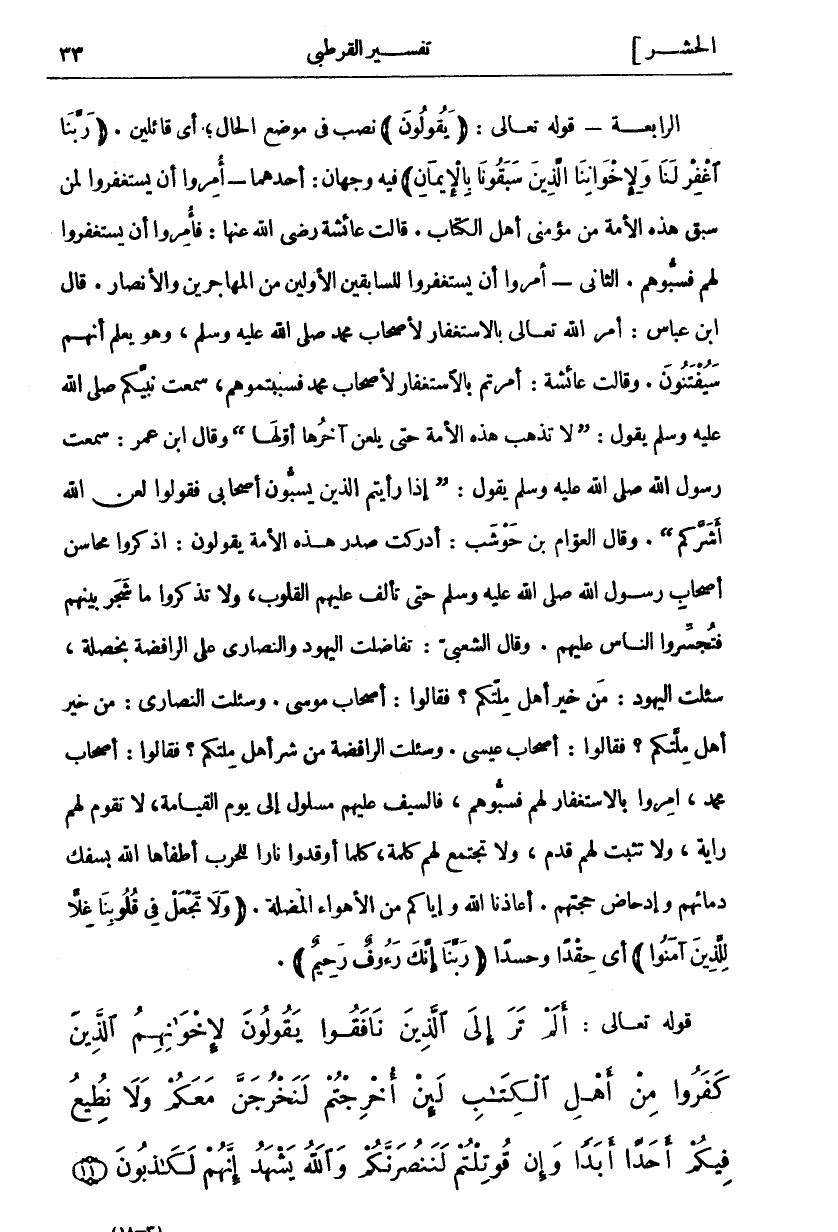 الحشر ] تفسير القرطبي ٣٣
الرابعة — قوله تعالى : ﴿ يَقُولُونَ ﴾ نصب فى موضع الحال؛ أى قائلين . ﴿ رَبَّنَا
ٱغْفِرْ لَنَا وَلِإِخْوَانِنَا الَّذِينَ سَبَقُونَا بِالْإِيمَانِ ﴾ فيه وجهان : أحدهما — أُمِروا أن يستغفروا لمن
سبق هذه الأمة من مؤمنى أهل الكتاب . قالت عائشة رضى الله عنها : فأُمِروا أن يستغفروا
لهم فسبُّوهم . الثانى — أمروا أن يستغفروا للسابقين الأولين من المهاجرين والأنصار . قال
ابن عباس : أمر الله تعالى بالاستغفار لأصحاب محمد صلى الله عليه وسلم ، وهو يعلم أنهم
سَيُفْتَنُونَ . وقالت عائشة : أمرتم بالٱستغفار لأصحاب محمد فسببتموهم ، سمعت نبيَّكم صلى الله
عليه وسلم يقول : ” لا تذهب هذه الأمة حتى يلعن آخرُها أوّلَها “ وقال ابن عمر : سمعت
رسول الله صلى الله عليه وسلم يقول : ” إذا رأيتم الذين يسبُّون أصحابى فقولوا لعن الله
أَشَرَّكم “ . وقال العوّام بن حَوْشَب : أدركت صدر هذه الأمة يقولون : اذكروا محاسن
أصحابِ رسول الله صلى الله عليه وسلم حتى تألف عليهم القلوب، ولا تذكروا ما شَجَر بينهم
فتُجسِّروا الناس عليهم . وقال الشعبىّ : تفاضلت اليهود والنصارى على الرافضة بخصلة ،
سئلت اليهود : مَن خير أهل مِلّتكم ؟ فقالوا : أصحاب موسى . وسئلت النصارى : من خير
أهل مِلَّتكم ؟ فقالوا : أصحاب عيسى . وسئلت الرافضة من شر أهل مِلتكم ؟ فقالوا : أصحاب
محمد ، امِروا بالاستغفار لهم فسبُّوهم ، فالسيف عليهم مسلول إلى يوم القيامة، لا تقوم لهم
راية ، ولا تثبت لهم قدم ، ولا تجتمع لهم كلمة، كلما أوقدوا نارا للحرب أطفأها الله بسفك
دمائهم وإدحاض حجتهم . أعاذنا الله وإياكم من الأهواء المُضلة . ﴿ وَلَا تَجْعَلْ فِى قُلُوبِنَا غِلًّا
لِلَّذِينَ آمَنُوا ﴾ أى حِقْدًا وحسدًا ﴿ رَبَّنَا إِنَّكَ رَءُوفٌ رَحِيمٌ ﴾ .
قوله تعالى : أَلَمْ تَرَ إِلَى ٱلَّذِينَ نَافَقُوا يَقُولُونَ لِإِخْوَٰنِهِمُ ٱلَّذِينَ
كَفَرُوا مِنْ أَهْلِ ٱلْكِتَـٰبِ لَئِنْ أُخْرِجْتُمْ لَنَخْرُجَنَّ مَعَكُمْ وَلَا نُطِيعُ
فِيكُمْ أَحَدًا أَبَدًا وَإِن قُوتِلْتُمْ لَنَنصُرَنَّكُمْ وَٱللَّهُ يَشْهَدُ إِنَّهُمْ لَكَـٰذِبُونَ ۝١١
(٣—١٨)